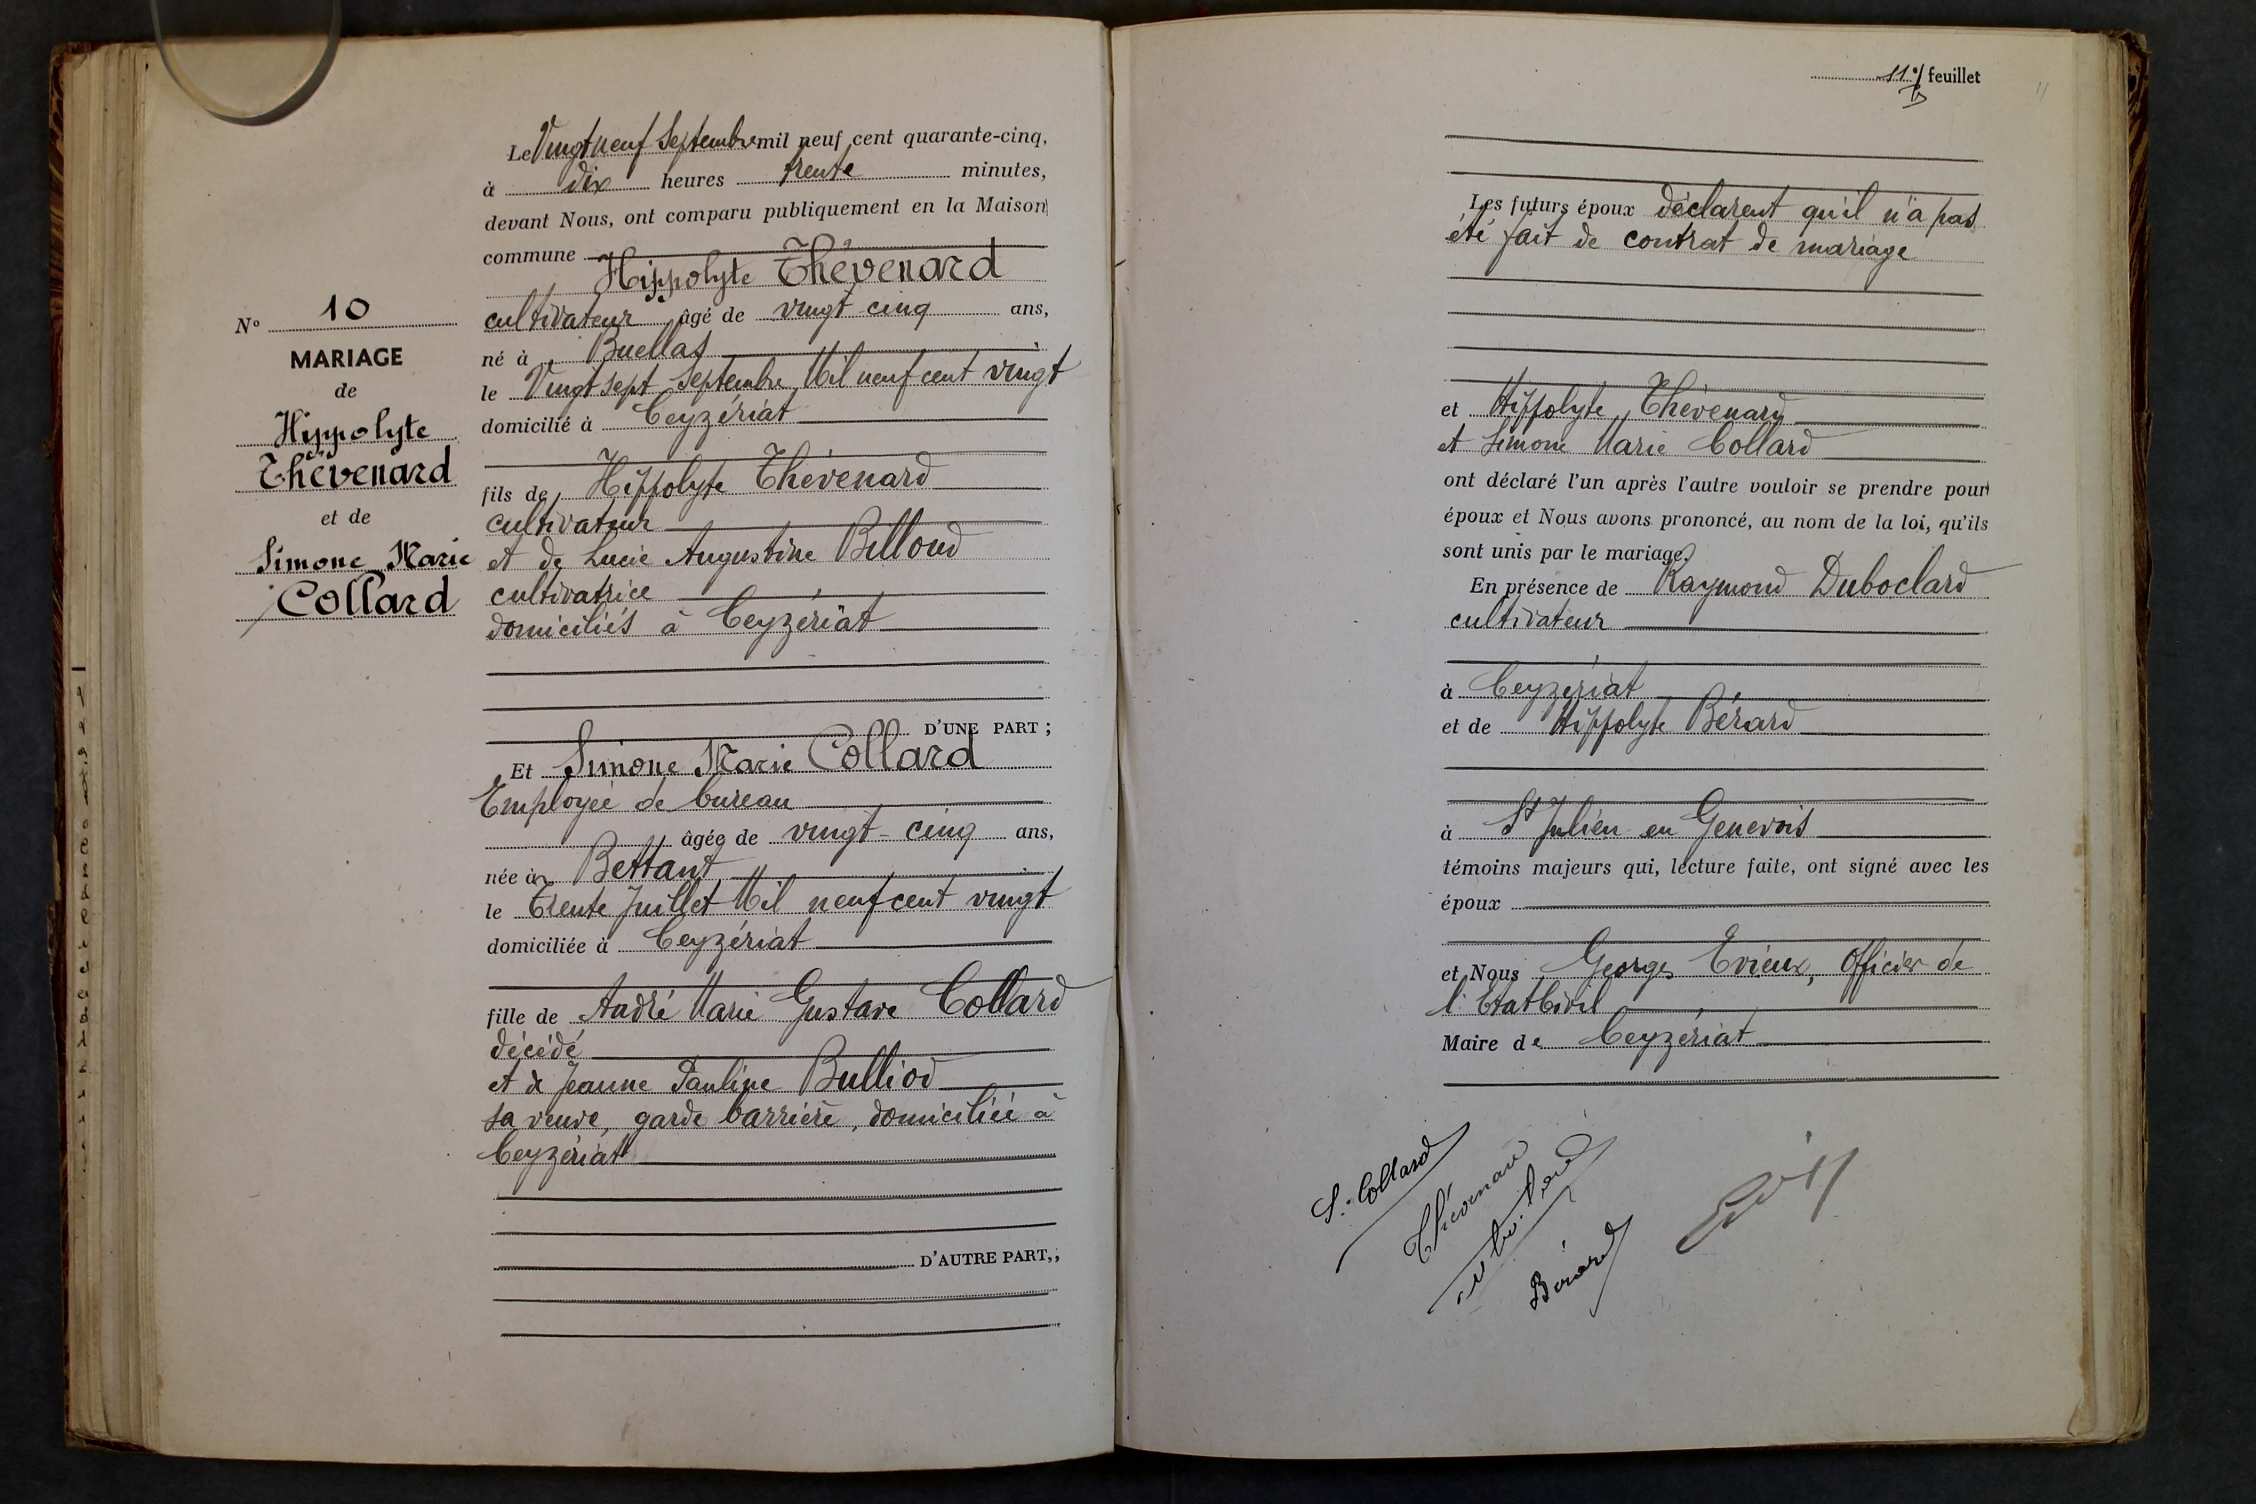 Le Vingt neuf Septembre mil neuf cent quarante-cinq,
à dix heures trente minutes,
devant Nous, ont comparu publiquement en la Maison
commune
Hippolyte Thévenard
cultivateur âgé de vingt cinq ans,
né à Buellas
le Vingt sept Septembre Mil neuf cent vingt
domicilié à Ceyzériat
fils de Hippolyte Thévenard
cultivateur
et de Lucie Augustine Billoud
cultivatrice
domiciliés à Ceyzériat
D'UNE PART ;
Et Simone Marie Collard
Employée de bureau
âgée de vingt-cinq ans,
née à Bettant
le Trente Juillet Mil neuf cent vingt
domiciliée à Ceyzériat
fille de André Marie Gustave Collard
décédé
et de Jeanne Pauline Bulliod
sa veuve, garde barrière, domiciliée à
Ceyzériat
D'AUTRE PART,;
N° 10
MARIAGE
de
Hippolyte
Thévenard
et de
Simone Marie
Collard
11e feuillet
11
Les futurs époux déclarent qu'il n'a pas
été fait de contrat de mariage
et Hippolyte Thévenard
et Simone Marie Collard
ont déclaré l'un après l'autre vouloir se prendre pour
époux et Nous avons prononcé, au nom de la loi, qu'ils
sont unis par le mariage.
En présence de Raymond Duboclard
cultivateur
à Ceyzériat
et de Hippolyte Bérard
à St Julien en Genevois
témoins majeurs qui, lecture faite, ont signé avec les
époux
et Nous Georges Evieux, Officier de
l'Etat Civil
Maire de Ceyzériat
S. Collard
Bérard